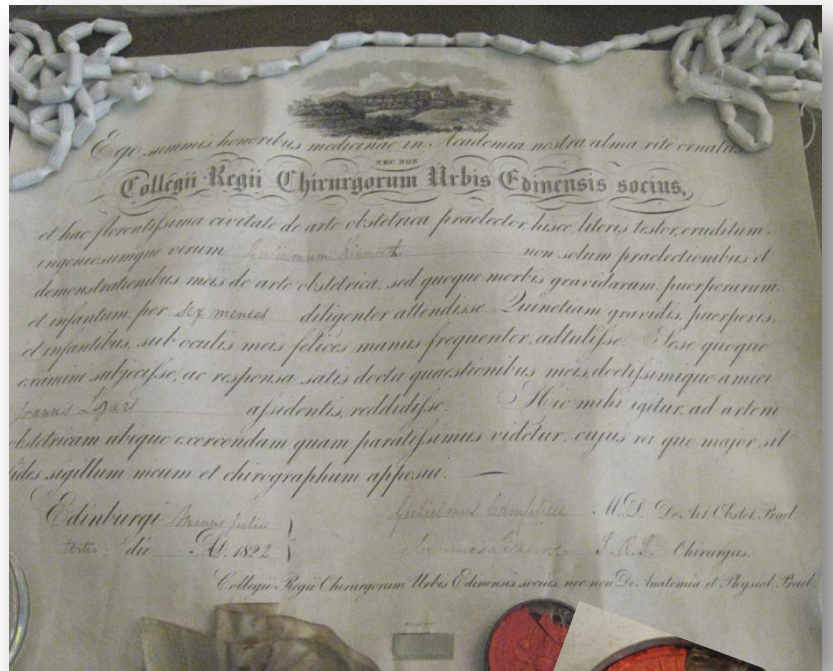 Ego summis honoribus medicinae in Academia nostra alma rite ornatus
NEC NON
Collegii Regii Chirurgorum Urbis Edinensis socius,
et hac florentissima civitate de arte obstetrica praelector, hisce literis testor, eruditum,
ingeniosumque virum Gulielmum non solum praelectionibus et
demonstrationibus meis de arte obstetrica, sed quoque morbis gravidarum, puerperarum,
et infantum, per sex menses diligenter attendisse. Quinetiam gravidis, puerperis,
et infantibus, sub oculis meis felices manus frequenter adtulisse. Sese quoque
examini subjecisse, ac responsa satis docta quaestionibus meis, doctissimique amici
Joannis Lizars assidentis, reddidisse. Hic mihi igitur ad artem
obstetricam ubique exercendam quam paratissimus videtur. cujus rei quo major sit
fides sigillum meum et chirographum apposui.
Edinburgi Mensis Julii Gulielmus Campbell M.D. De Art Obstet. Prael.
tertio die A.D. 1822 Joannes Lizars Chirurgus.
Collegii Regii Chirurgorum Urbis Edinensis socius, nec non De Anatomia et Physiol. Prael.